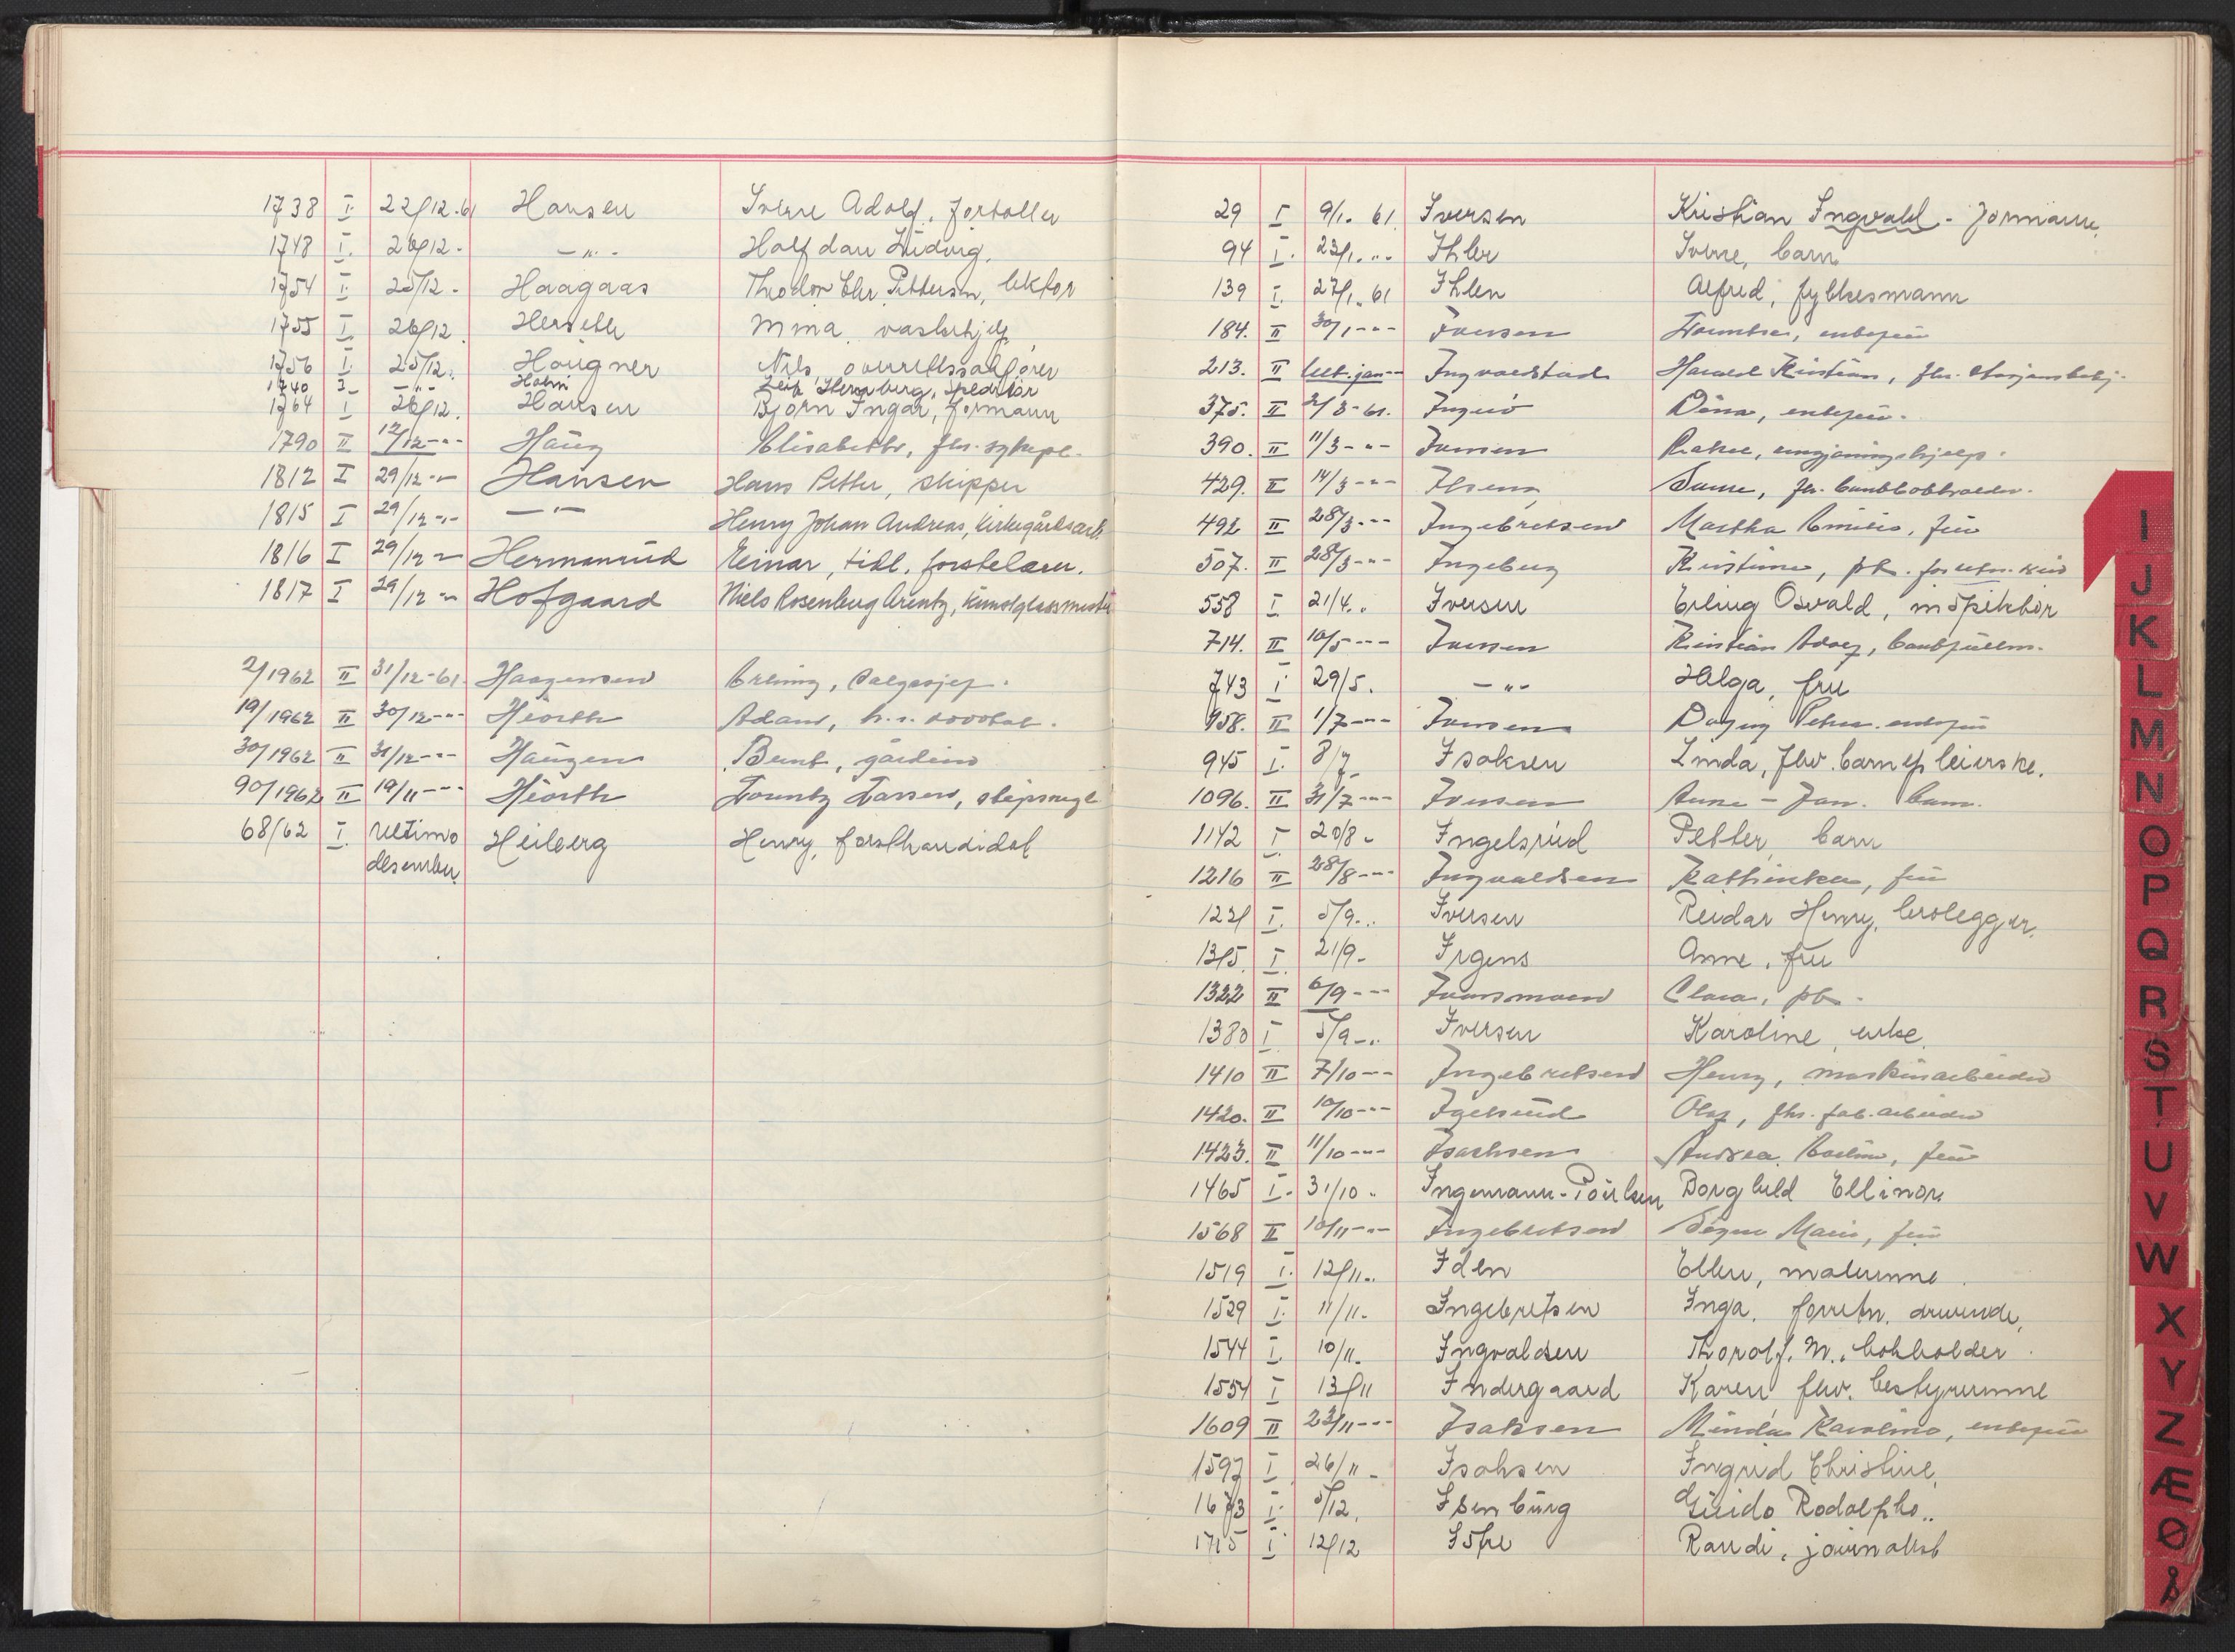 1738 I. 22/12.61 Hansen Sverre Adolf, fortoller
1748 I. 26/12. -"- Halfdan Ludvig.
1754 I. 25/12. Haagaas Theodor Chr. Pettersen, lektor
1755 I. 26/12. Herseth Mina, vaskehjelp
1756 I. 25/12. Haugner Nils, overrettssakfører
1740 I -"- Holm Leif Hernberg, Speditør
1764 I 26/12. Hansen Bjørn Ingar, formann
1790 II 12/12-"- Haug Elisabeth, fhv. sykepl.
1812 I 29/12-"- Hansen Hans Petter, skipper
1815 I 29/12-"- -"- Henry Johan Andreas, kirkegårdsarb
1816 I 29/12-"- Hermanrud Reinar, tidl. forstelærer.
1817 I 29/12-"- Hofgaard Niels Rosenberg Arentz, kunstglassmester
2/1962 II 31/12-61. Haagensen Erling, salgssjef.
19/1962 II 30/12-"- Hiorth Adam,
30/1962 II 31/12-"- Haugen Bernt, gårdeier
90/1962 II 19/11-"- Hiorth Lorentz Larsen, skipsmegl
68/62 I. Ultimo Heiberg Henry, forstkandidat
desember
29 I 9/1. 61. Iversen Kristian Ingvald - formann.
94 I. 23/1. -"- Ihler Sverre, barn
139 I. 27/1. 61 Ihlen Alfred, fylkesmann
184. II 30/1-"- Iversen Lovise, enkefru
213. II ult. jan-"- Ingvaldstad Harald Kristian, fhv.
375. II 2/3-61. Ingier Dina, enkefru.
390. II 11/3-"- Iversen Rakel, rengjøringshjelp.
429. II 14/3-"- Ilseng Sum, fhv.
492 II 28/3-"- Ingebretsen Martha Emilie, fru
507. II 28/3-"- Ingeberg Kristine, pk.
558 I 21/4. " Iversen Erling Osvald, inspektør
714. II 10/5-"- Iversen Kristian Adolf, bankfullm.
743 I 29/5. -"- Helga, fru
958. II 1/7-"- Iversen Dagny Petra. enkefru
945 I. 8/7- Isaksen Linda, fhv. barnepleierske.
1096. II 31/7-"- Iversen Anne-Jan. barn.
1142 I 20/8. Ingelsrud Petter, barn
1216 II 28/8-"- Ingvaldsen Kathinka, fru
1221 I. 5/9.. Iversen Reidar Henry, brolegger.
1315. I. 21/9- Irgens Anne, fru
1322 II 6/9-"- Ivarsmoen Clara, pk.
1380 I 5/9-.. Iversen Karoline, enke.
1410 II 7/10-"- Ingebretsen Henry, maskinarbeider
1420. II 10/10-"- Igelsrud Olaf, fhv. fab.arbeider
1423. II 11/10-"- Isachsen Andrea Eveline, fru
1465 I. 31/10. Ingemann-Poulsen Borghild Ellinor
1568 II 10/11-"- Ingebretsen Signe Marie, fru
1519 I. 12/11.. Iden Ellen, malerinne.
1529 I. 11/11. Ingebretsen Inga, forretn. drivende,
1544 I. 10/11. Ingvaldsen Thorolf, M., bokholder.
1554 I 13/11 Indergaard Karen, fhv. bestyrerinne
1609 II 23/11-"- Isaksen Minda Karoline, enkefru
1597 I 26/11- Isaksen Ingrid Christine,
1673 I. 5/12. Isenburg Guido Rodolpho..
1715 I 12/12 Isfre Randi, journalist
I
J
K
L
M
N
O
P
Q
R
S
T
U
V
W
X
Y
Z
Æ
Ø
Å